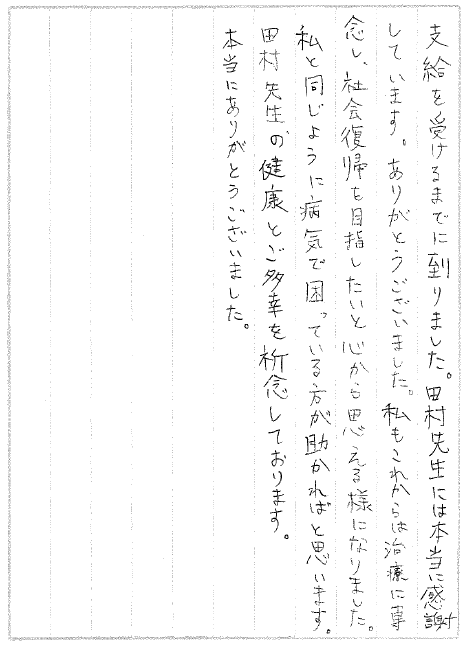 支給を受けるまでに到りました。田村先生には本当に感謝
しています。ありがとうございました。私もこれからは治療に専
念し、社会復帰を目指したいと心から思える様になりました。
私と同じように病気で困っている方が助かればと思います。
田村先生の健康とご多幸を祈念しております。
本当にありがとうございました。